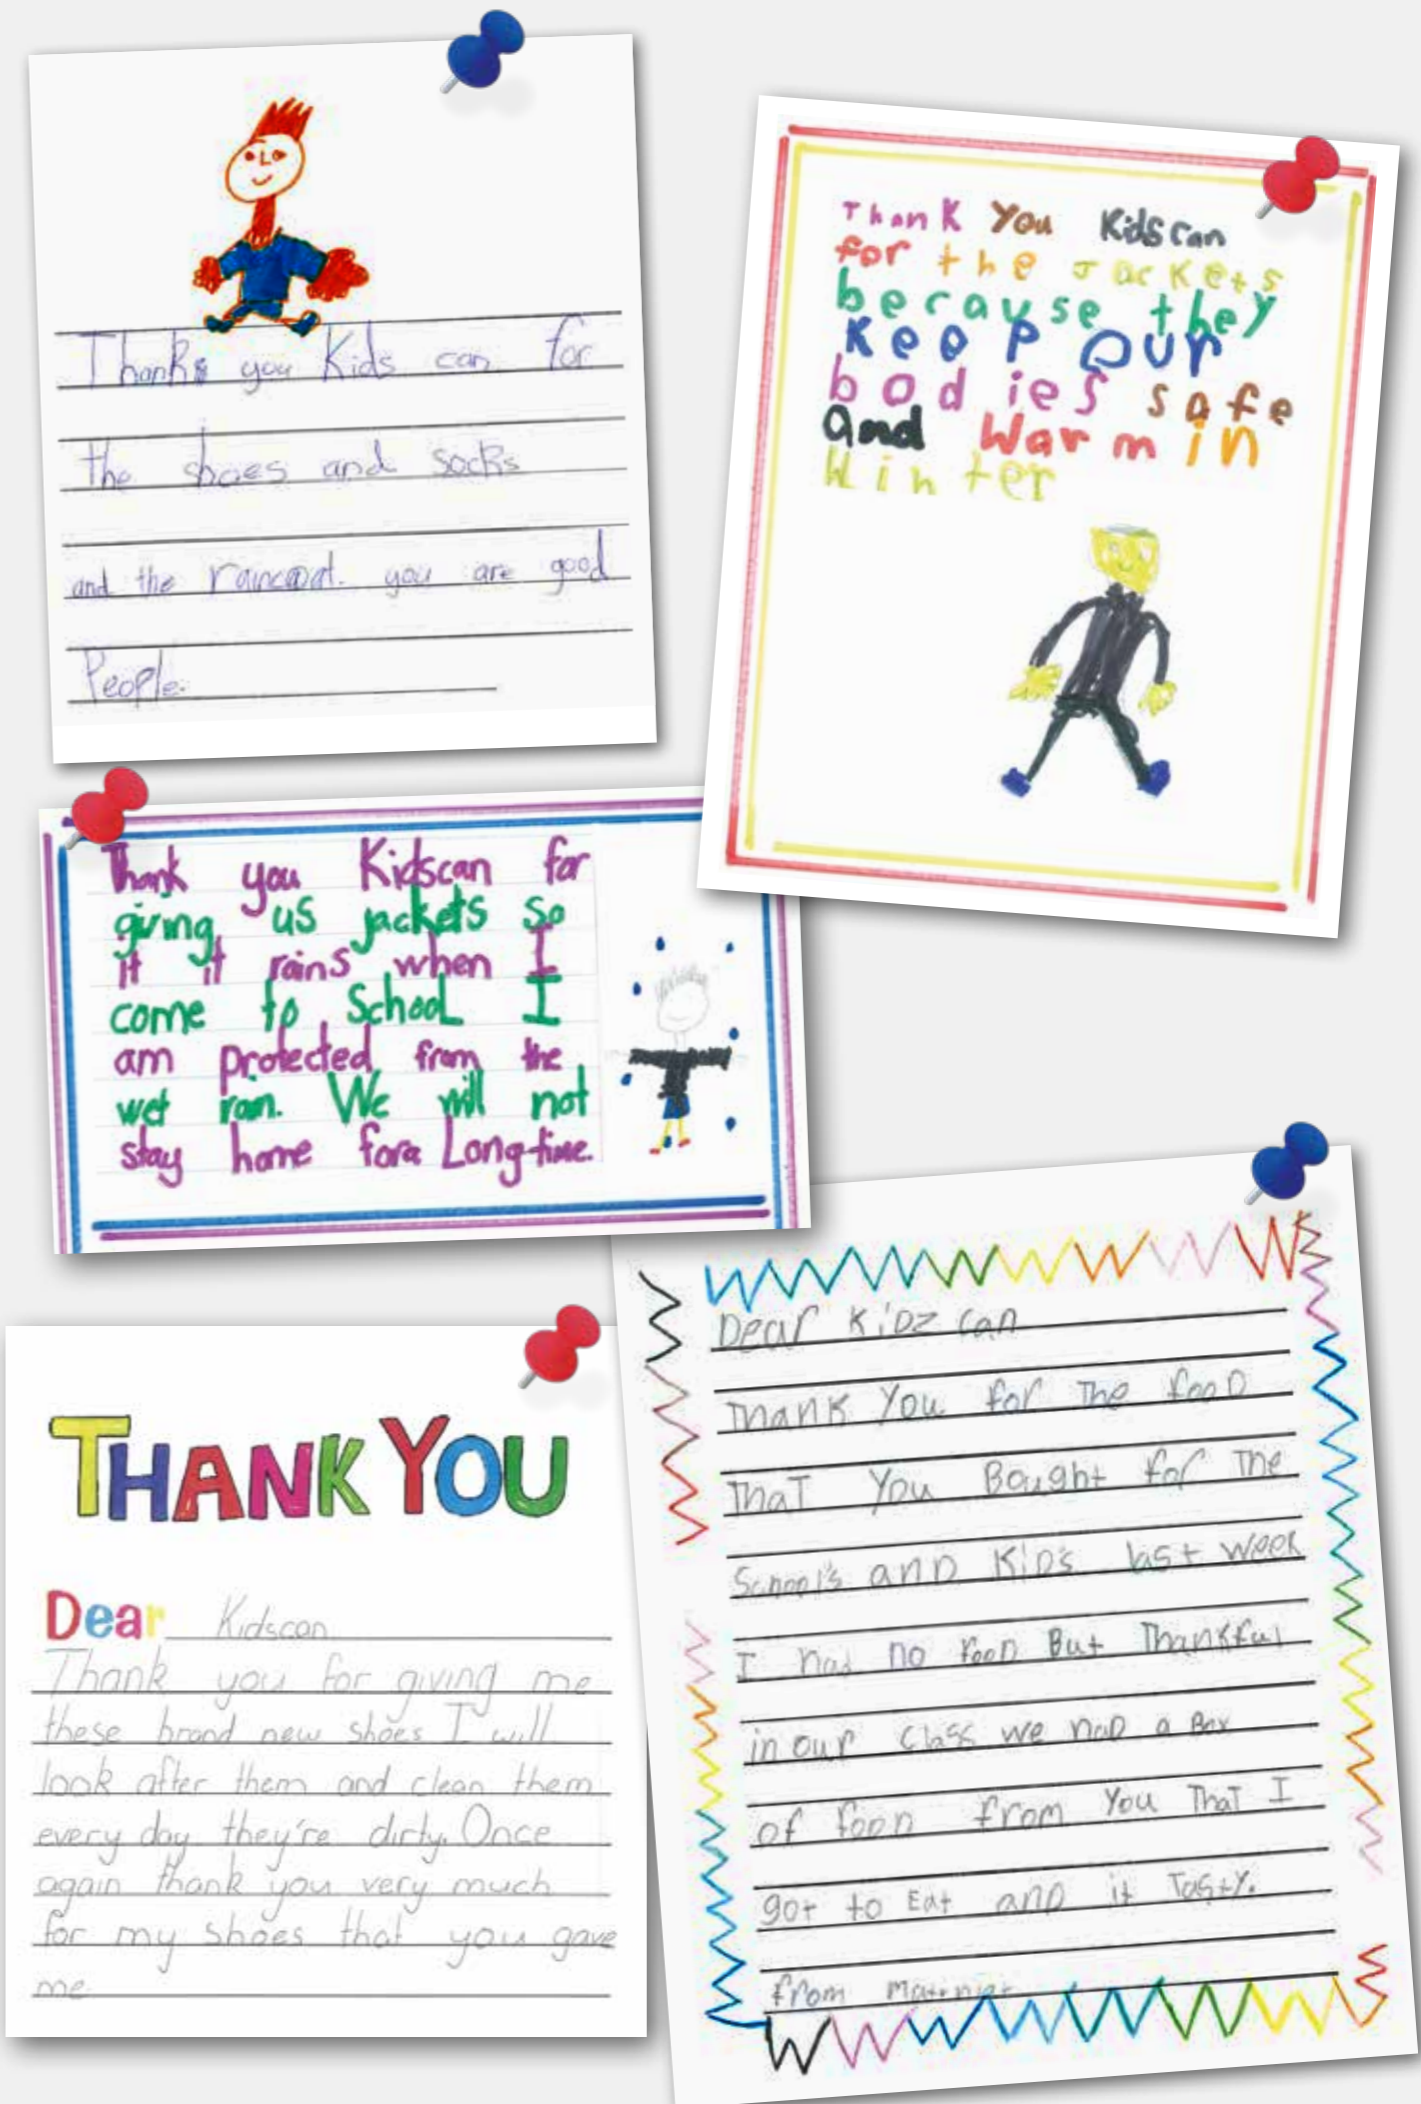 Thanks you Kids can for
the shoes and socks
and the raincoat. you are good
People.
Thank You Kidscan
for the Jackets
because they
keep our
bodies safe
and Warm in
Winter
Thank you Kidscan for
giving us jackets so
it it rains when I
come to School I
am protected from the
wet rain. We will not
stay home fora Long-time.
THANK YOU
Dear Kidscan
Thank you for giving me
these brand new shoes I will
look after them and clean them
every day they're dirty. Once
again thank you very much
for my shoes that you gave
me
Dear KiDz can
Thank You for The fooD
ThaT You Bought for The
School's anD KiD's last week
I had no fooD But Thankful
in our class we haD a Box
of fooD from You That I
got to Eat anD it Tasty.
from